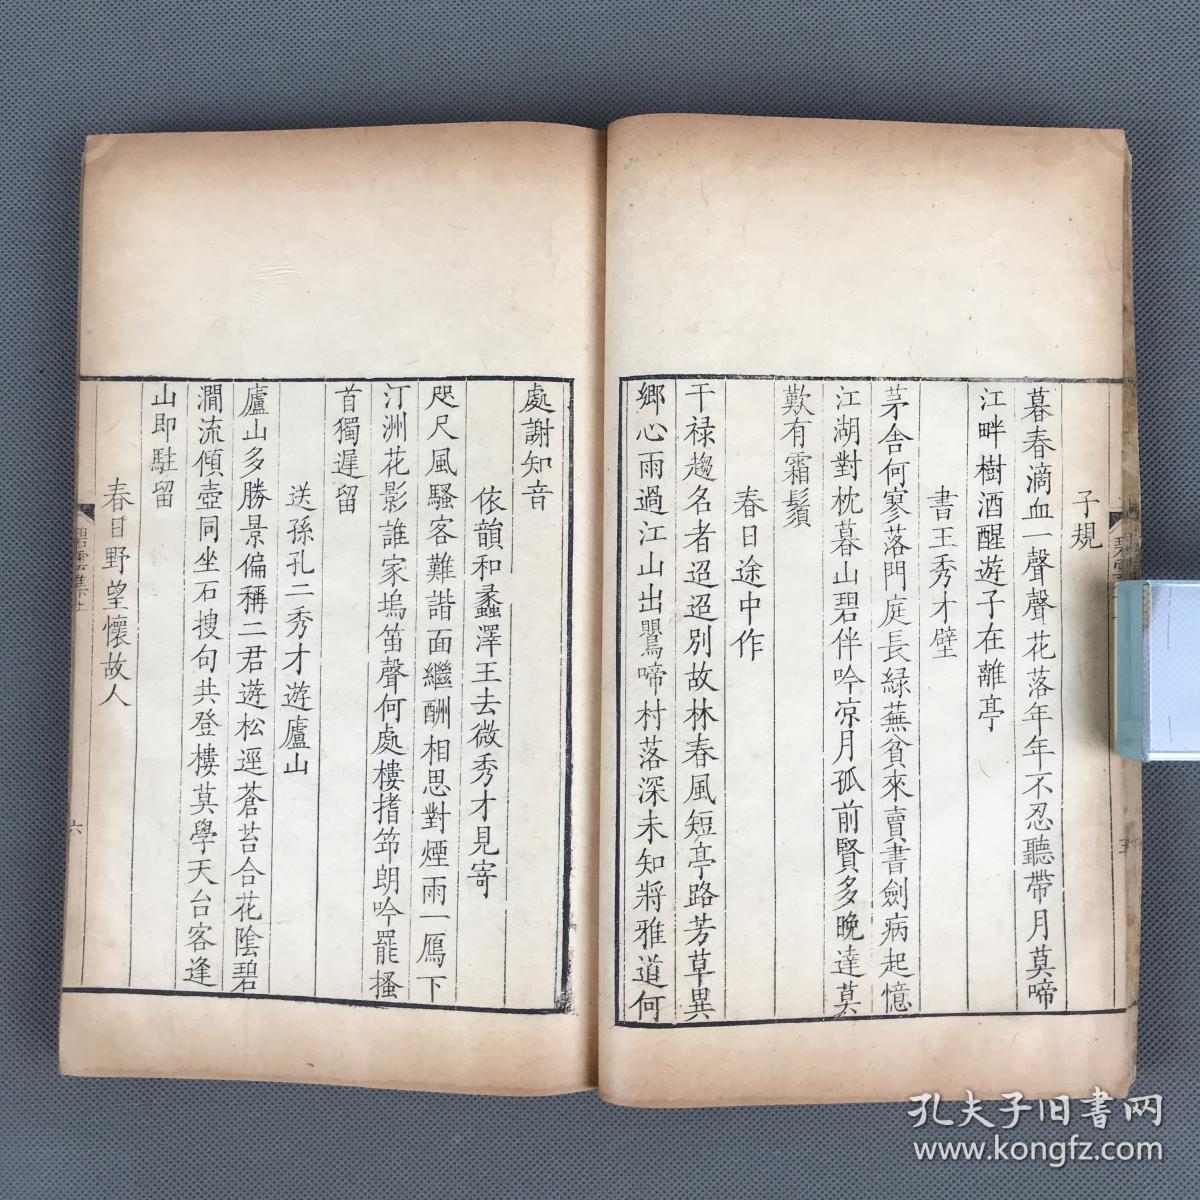 子規
暮春滴血一聲聲花落年年不忍聽帶月莫啼
江畔樹酒醒遊子在離亭
書王秀才壁
茅舍何寥落門庭長緑蕪貧來賣書劍病起憶
江湖對枕暮山碧伴吟凉月孤前賢多晚達莫
歎有霜鬚
春日途中作
干禄趨名者迢迢别故林春風短亭路芳草異
鄉心雨過江山出鸎啼村落深未知將雅道何
處謝知音
依韻和蠡澤王去微秀才見寄
咫尺風騷客難諧面繼酬相思對煙雨一鴈下
汀洲花影誰家塢笛聲何處樓揩筇朗吟罷搔
首獨遲留
送孫孔二秀才遊廬山
廬山多勝景偏稱二君遊松逕蒼苔合花陰碧
澗流傾壺同坐石搜句共登樓莫學天台客逢
山即駐留
春日野望懷故人
碧雲集上
六
孔夫子旧書网
www.kongfz.com